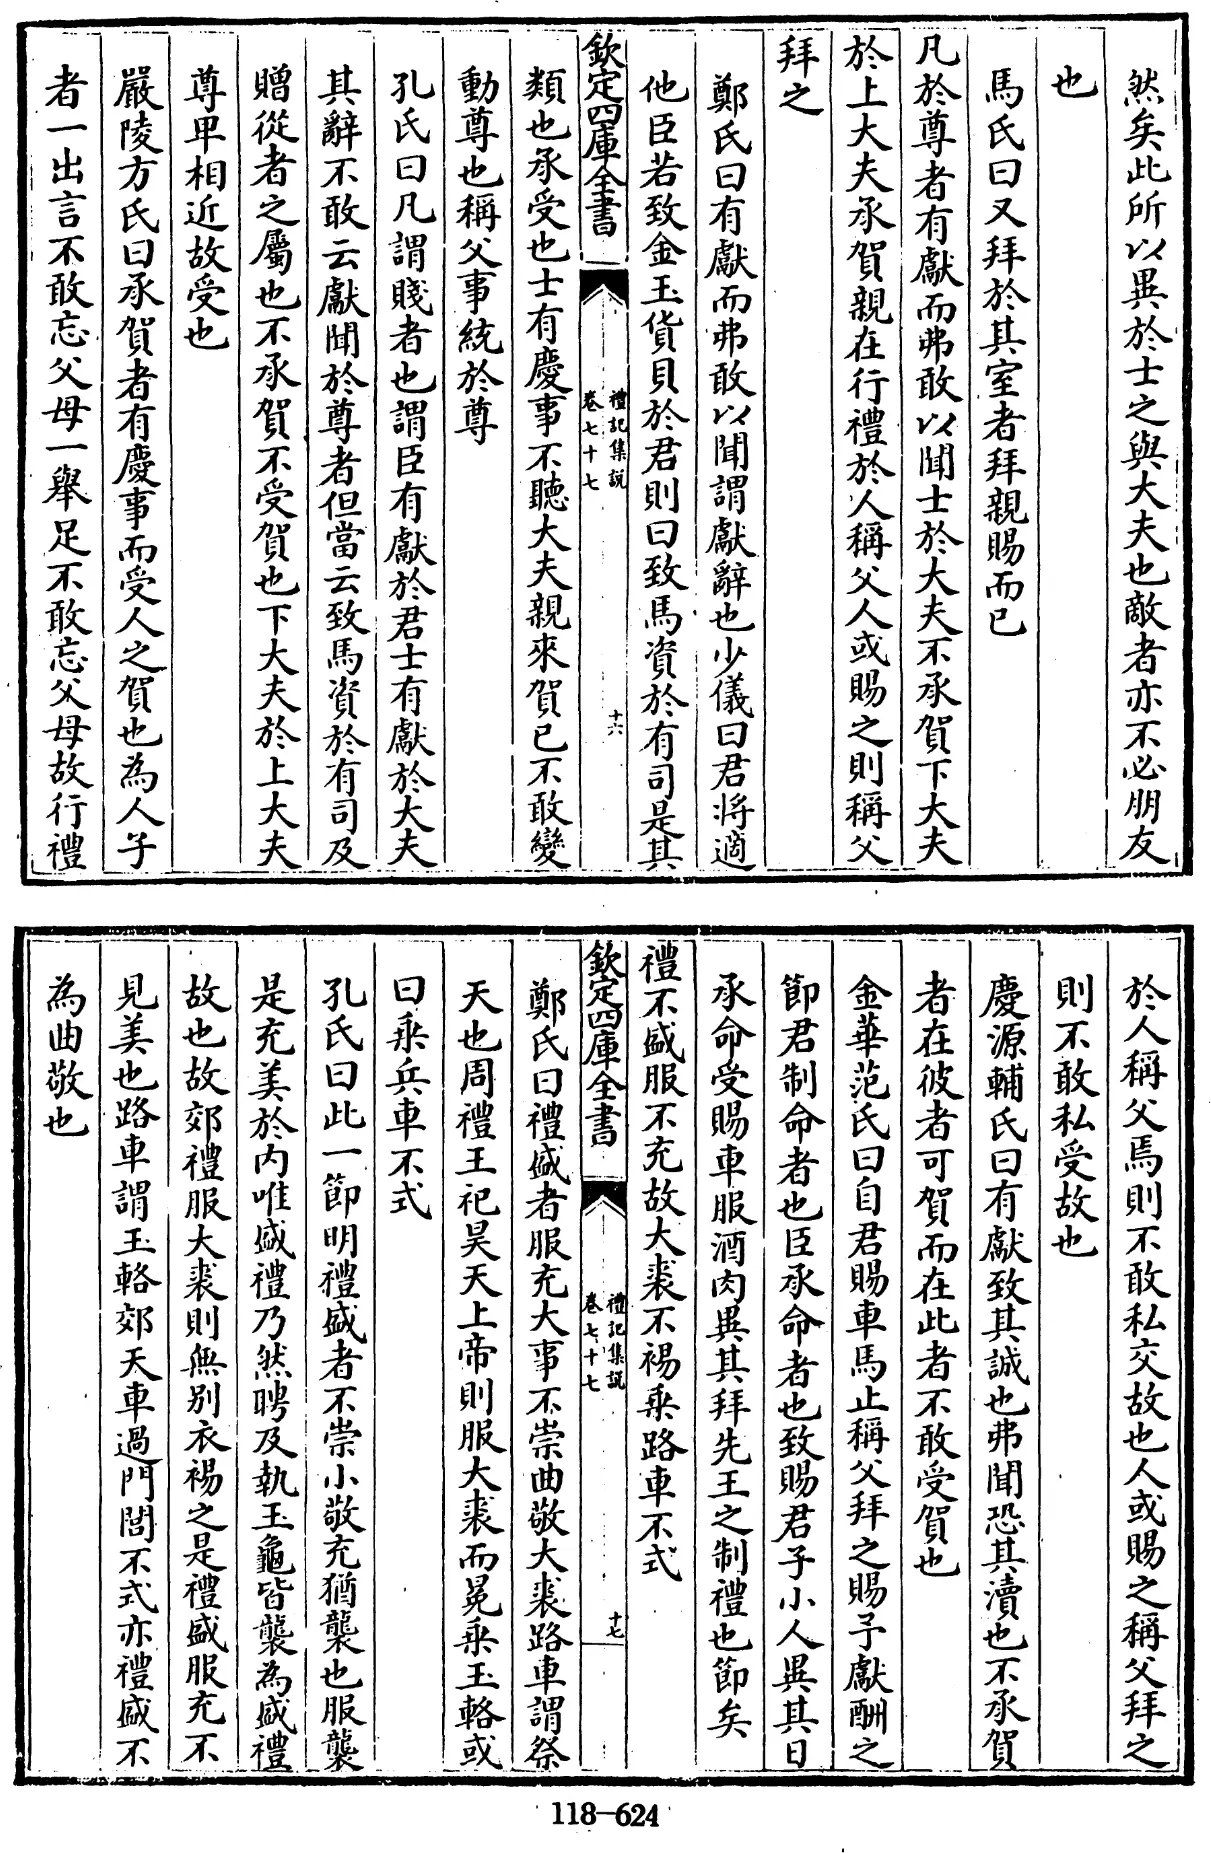 然矣此所以異於士之與大夫也敵者亦不必朋友
也
馬氏曰又拜於其室者拜親賜而已
凡於尊者有獻而弗敢以聞士於大夫不承賀下大夫
於上大夫承賀親在行禮於人稱父人或賜之則稱父
拜之
鄭氏曰有獻而弗敢以聞謂獻辭也少儀曰君將適
他臣若致金玉貨貝於君則曰致馬資於有司是其
欽定四庫全書
禮記集說
卷七十七
十六
類也承受也士有慶事不聽大夫親來賀已不敢變
動尊也稱父事統於尊
孔氏曰凡謂賤者也謂臣有獻於君士有獻於大夫
其辭不敢云獻聞於尊者但當云致馬資於有司及
贈從者之屬也不承賀不受賀也下大夫於上大夫
尊卑相近故受也
嚴陵方氏曰承賀者有慶事而受人之賀也為人子
者一出言不敢忘父母一舉足不敢忘父母故行禮
於人稱父焉則不敢私交故也人或賜之稱父拜之
則不敢私受故也
慶源輔氏曰有獻致其誠也弗聞恐其瀆也不承賀
者在彼者可賀而在此者不敢受賀也
金華范氏曰自君賜車馬止稱父拜之賜予獻酬之
節君制命者也臣承命者也致賜君子小人異其日
承命受賜車服酒肉異其拜先王之制禮也節矣
禮不盛服不充故大裘不裼乘路車不式
欽定四庫全書
禮記集說
卷七十七
十七
鄭氏曰禮盛者服充大事不崇曲敬大裘路車謂祭
天也周禮王祀昊天上帝則服大裘而冕乘玉輅或
曰乘兵車不式
孔氏曰此一節明禮盛者不崇小敬充猶襲也服襲
是充美於内唯盛禮乃然聘及執玉龜皆襲為盛禮
故也故郊禮服大裘則無别衣裼之是禮盛服充不
見美也路車謂玉輅郊天車過門閭不式亦禮盛不
為曲敬也
118—624